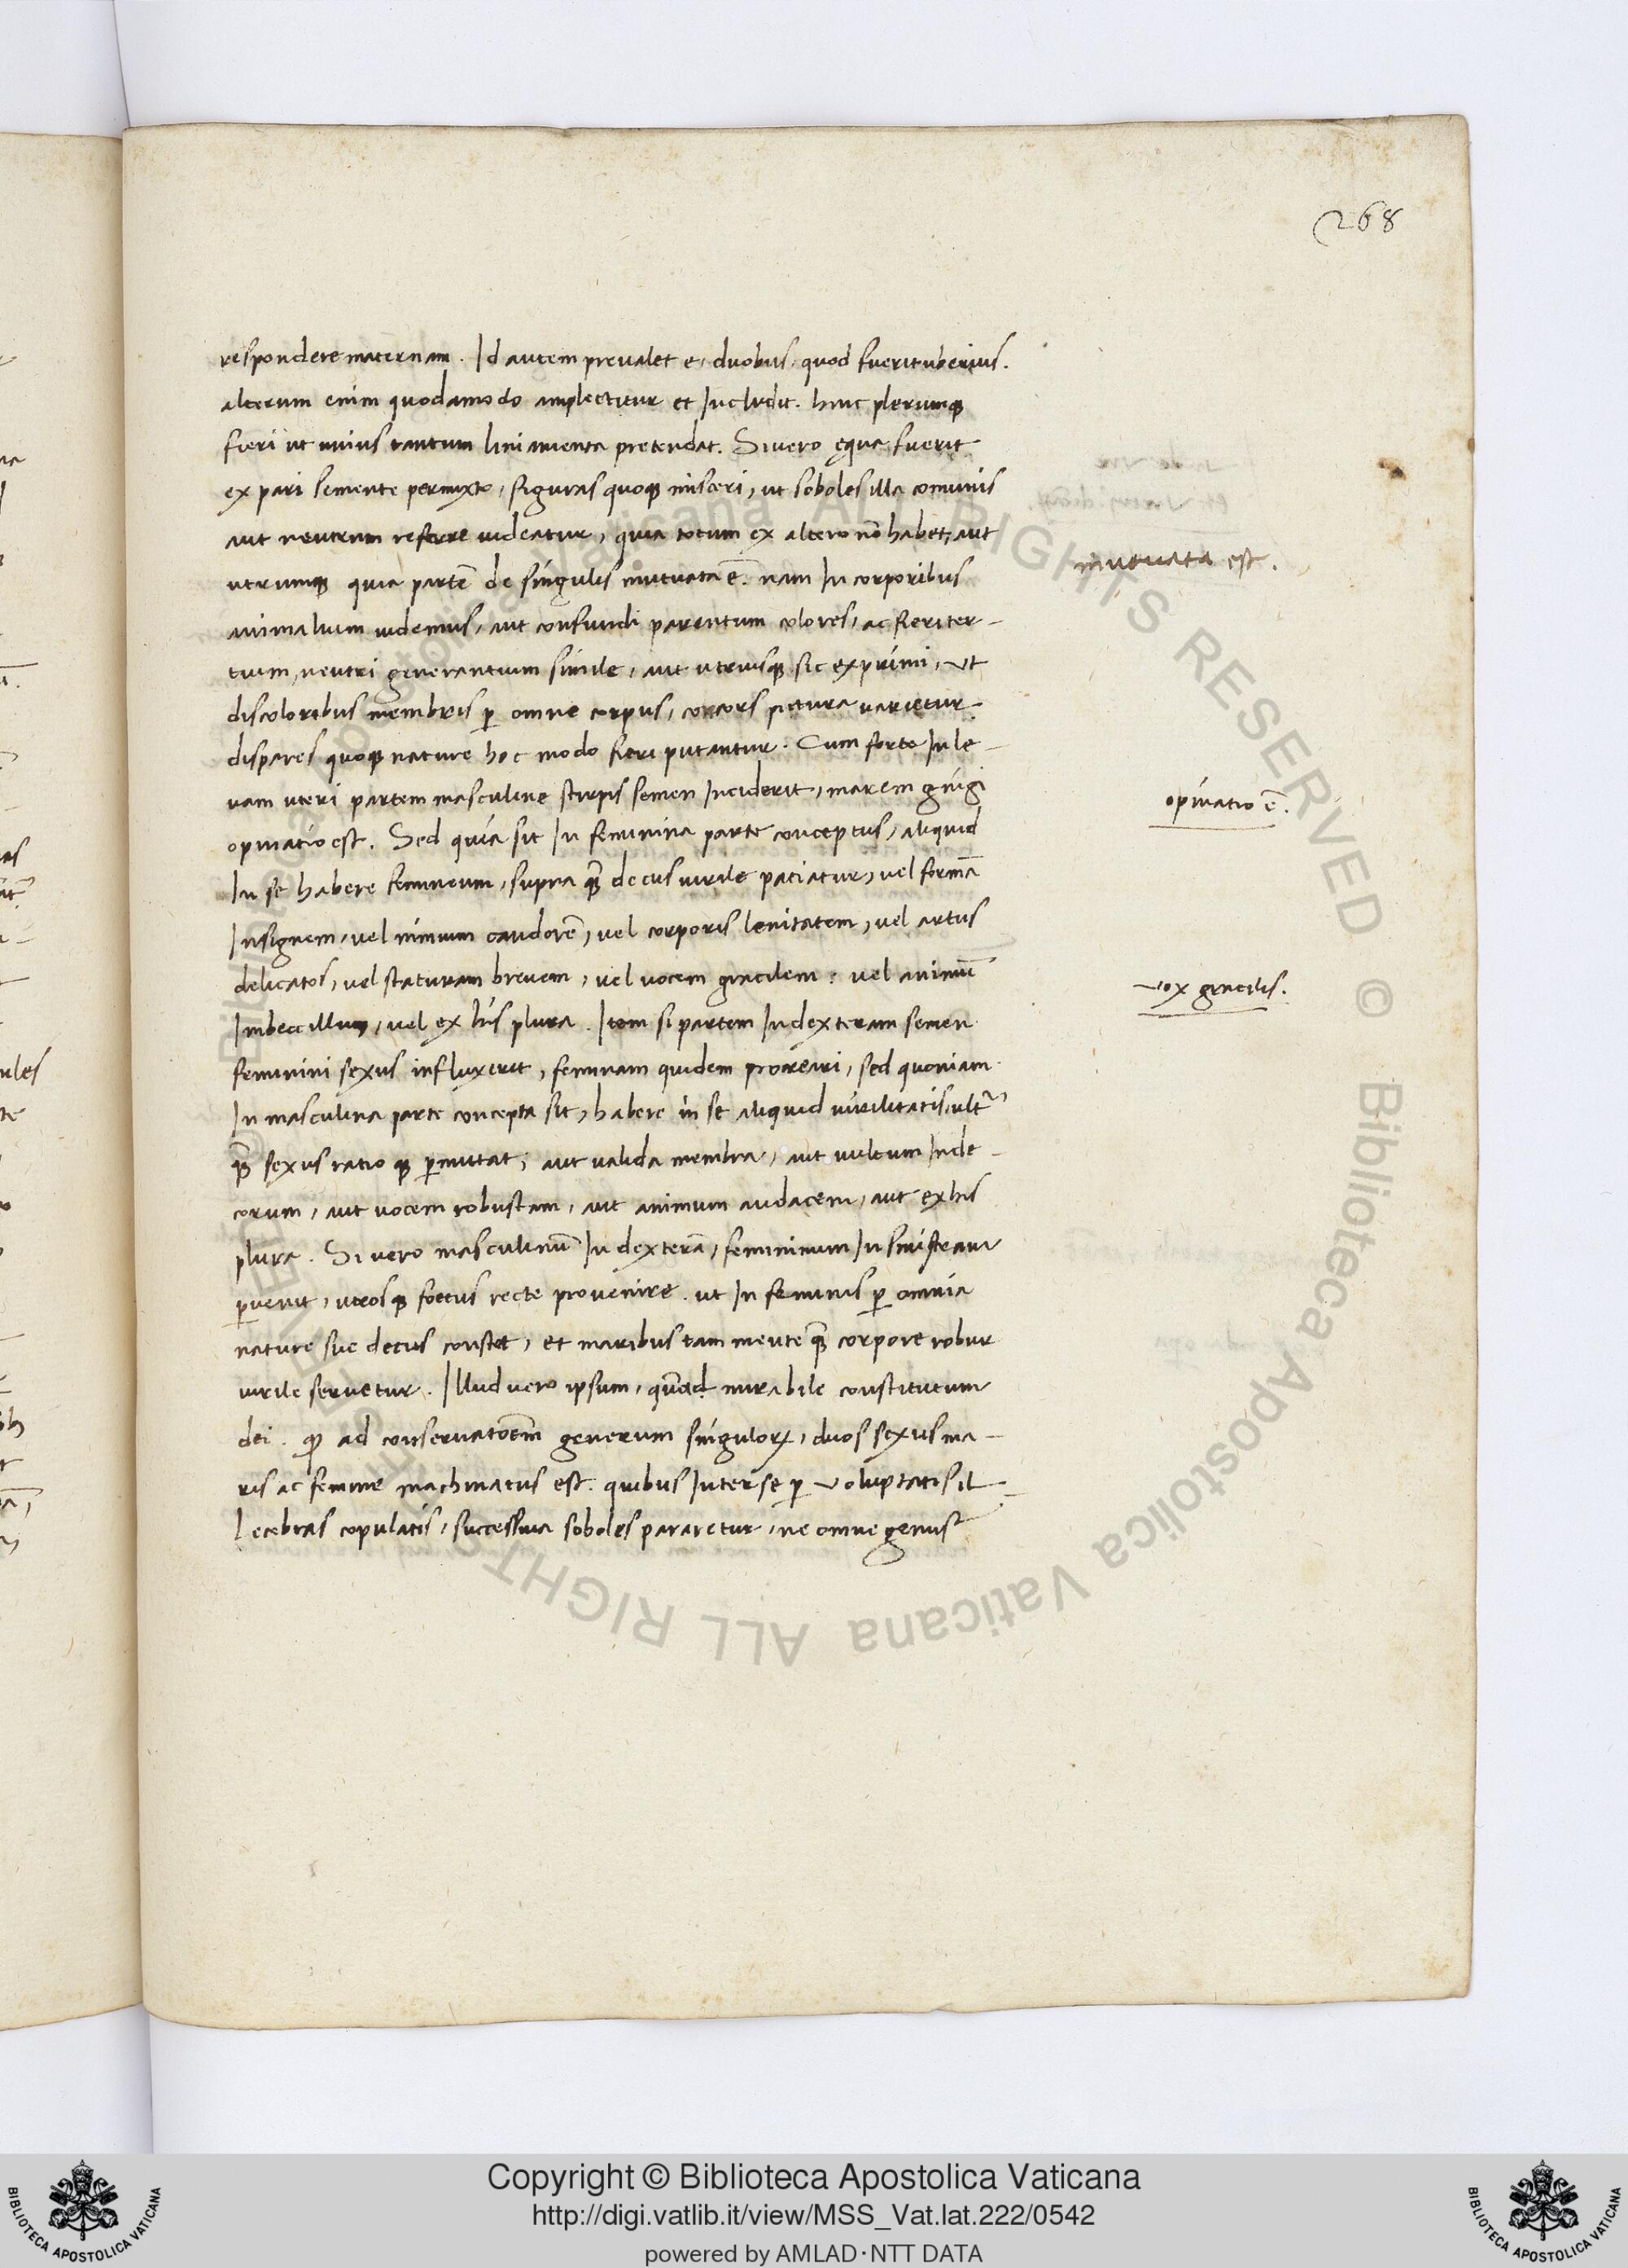 268
respondere maternam. Id autem prevalet e duobus quod fuerit uberius.
alterum enim quodamodo amplectitur et Includit. hinc plerumqꝫ
fieri ut unius tantum liniamenta pretendat. Si vero equa fuerit
ex pari semente permixto, figuras quoqꝫ misceri, ut soboles illa comunis
aut neutrum referre videatur, quia totum ex altero nō habet, aut
utrumqꝫ quia partē de singulis mutuata ē. nam In corporibus
mutuata est.
animalium videmus, aut confundi parentum colores, ac fieri ter-
tium, neutri generantium simile, aut utriusqꝫ sic exprimi, ut
discoloribus membris ꝑ omne corpus, concors pictura varietur.
dispares quoqꝫ nature hoc modo fieri putantur. Cum forte In le-
vam uteri partem masculine stirpis semen Inciderit, marem gigni
opinatio ē.
opinatio est. Sed quia sit In feminina parte conceptus, aliquid
In se habere femineum, supra qꝫ̄ decus virile patiatur, vel formā
Insignem, vel nimium candorē, vel corporis lenitatem, vel artus
delicatos, vel staturam brevem, vel vocem gracilem: vel animū
vox gracilis.
Imbecillum, vel ex his plura. Item si partem In dexteram semen
feminini sexus influxerit, feminam quidem procreari, sed quoniam
In masculina parte concepta sit, habere in se aliquid virilitatis, ultᵃ
qꝫ̄ sexus ratio qꝫ ꝑmittat; aut valida membra, aut vultum Inde-
corum, aut vocem robustam, aut animum audacem, aut ex his
plura. Si vero masculinū In dexterā, femininum In sinistram
ꝑvenit, utrosqꝫ foetus recte provenire. ut In feminis ꝑ omnia
nature sue decus constet, et maribus tam mente qꝫ̄ corpore robur
virile servetur. Illud vero ipsum, quād mirabile constitutum
dei. qꝫ ad conservatōem generum singuloꝝ, duos sexus ma-
ris ac femine machinatus est. quibus Inter se ꝑ voluptatis il-
lecebras copulatis, successiva soboles pararetur, ne omne genus
© Biblioteca Apostolica Vaticana ALL RIGHTS RESERVED © Biblioteca Apostolica Vaticana ALL RIGHTS RESERVED
BIBLIOTECA APOSTOLICA VATICANA
Copyright © Biblioteca Apostolica Vaticana
http://digi.vatlib.it/view/MSS_Vat.lat.222/0542
powered by AMLAD·NTT DATA
BIBLIOTECA APOSTOLICA VATICANA